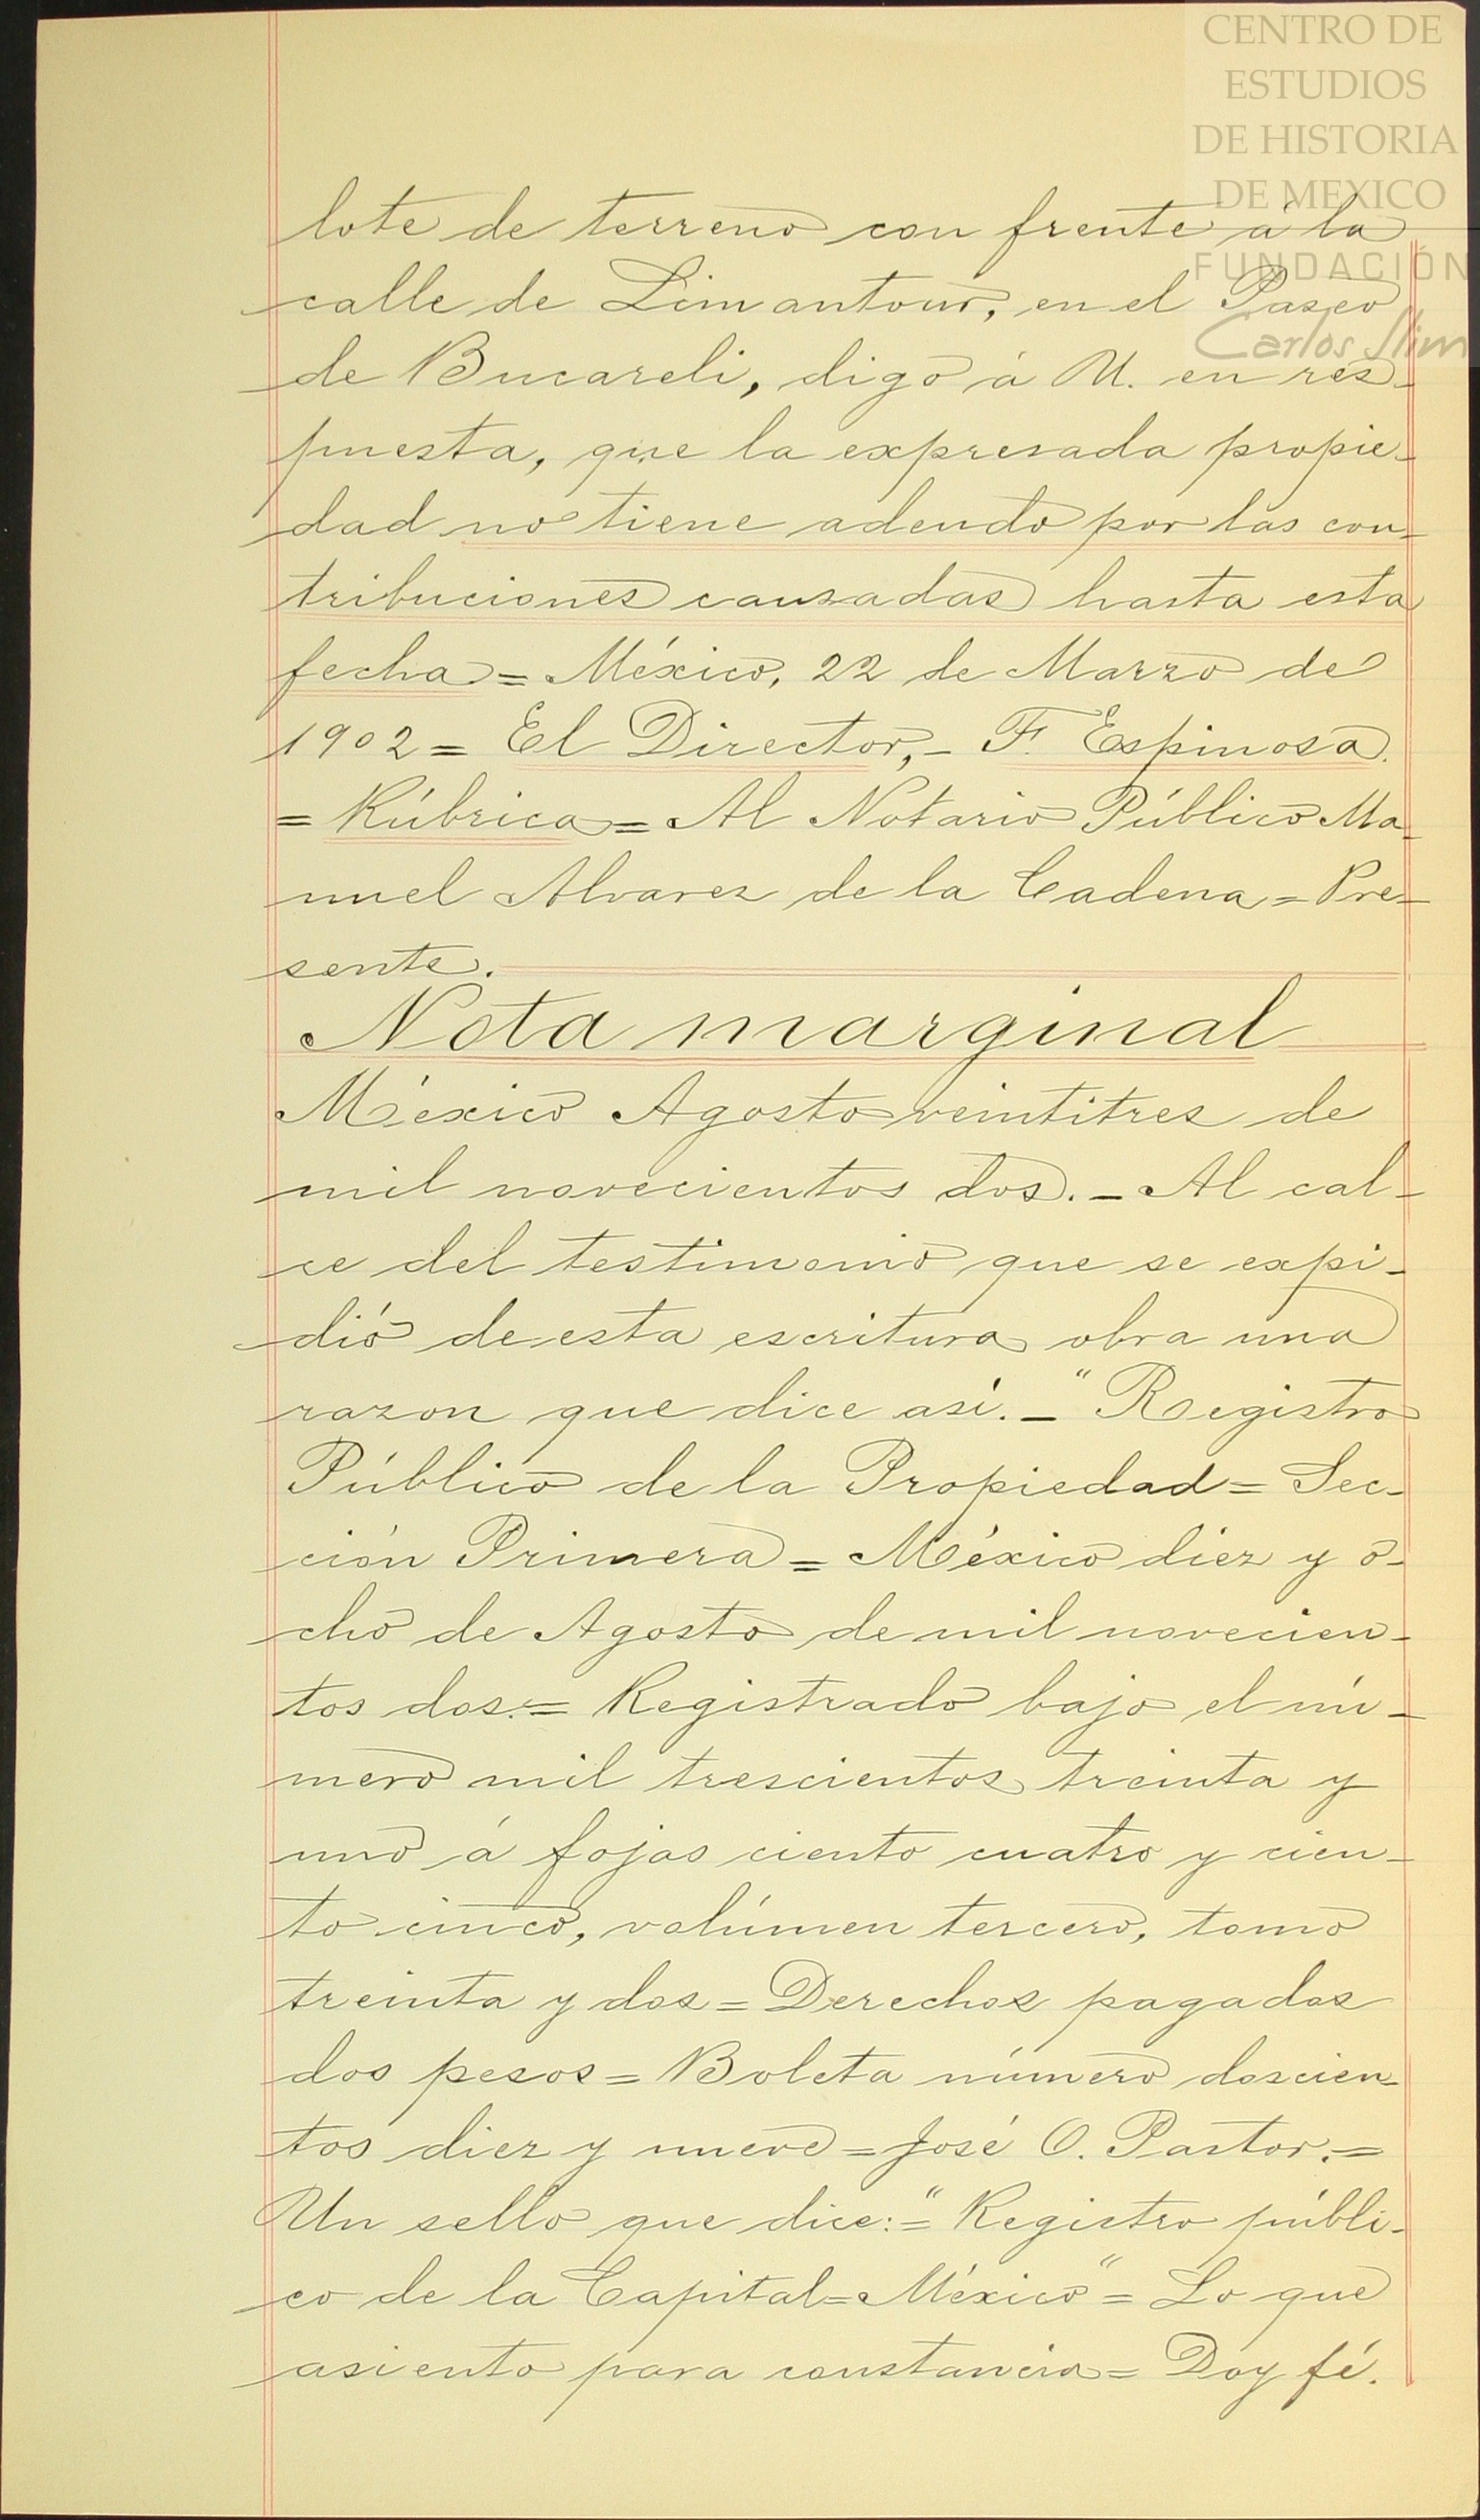 CENTRO DE
ESTUDIOS
DE HISTORIA
DE MEXICO
FUNDACIÓN
Carlos Slim
lote de terreno con frente á la
calle de Limantour, en el Paseo
de Bucareli, digo á U. en res-
puesta, que la expresada propie-
dad no tiene adeudo por las con-
tribuciones causadas hasta esta
fecha = México, 22 de Marzo de
1902 = El Director, - F. Espinosa.
= Rúbrica = Al Notario Público Ma-
nuel Alvarez de la Cadena = Pre-
sente.
Nota marginal
México Agosto veintitres de
mil novecientos dos. - Al cal-
ce del testimonio que se expi-
dió de esta escritura obra una
razon que dice así. - "Registro
Público de la Propiedad = Sec-
ción Primera = México diez y o-
cho de Agosto de mil novecien-
tos dos. = Registrado bajo el nú-
mero mil trescientos treinta y
uno á fojas ciento cuatro y cien-
to cinco, volúmen tercero, tomo
treinta y dos = Derechos pagados
dos pesos = Boleta número doscien-
tos diez y nueve = José O. Pastor. =
Un sello que dice: = "Registro públi-
co de la Capital = México" = Lo que
asiento para constancia = Doy fé.